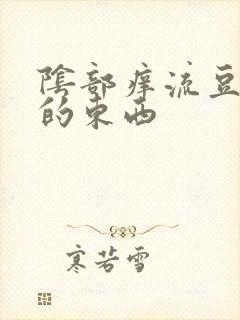 陰部痒流豆
的東西
寒若雪